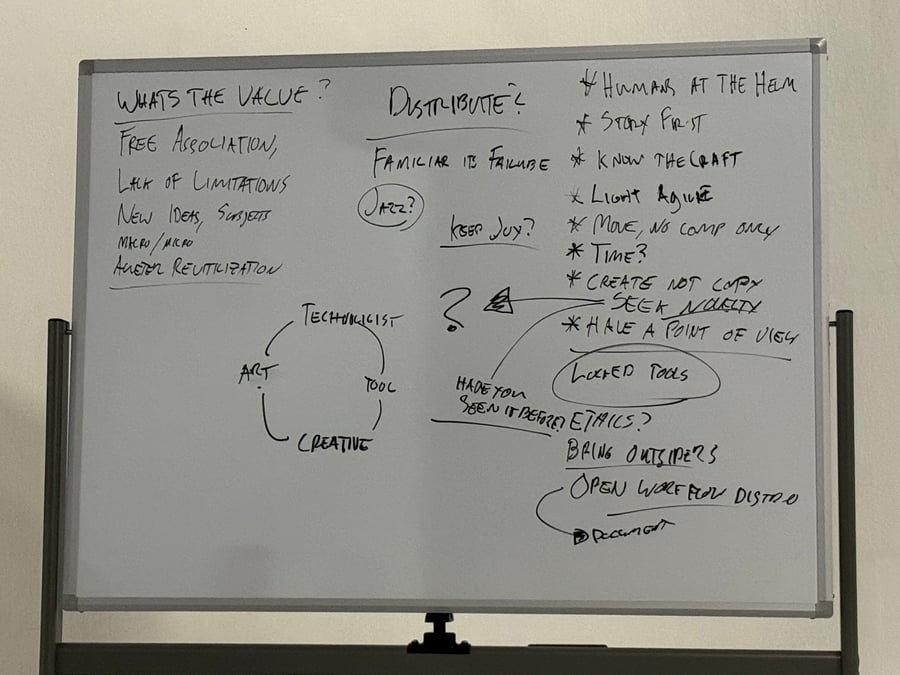 WHATS THE VALUE?
FREE ASSOCIATION,
LACK OF LIMITATIONS
NEW IDEAS, SUBJECTS
MACRO/MICRO
REUTILIZATION
TECHNOLIGIST
ART
TOOL
CREATIVE
DISTRIBUTE?
FAMILIAR IS FAILURE
JAZZ?
KEEP JOY?
?
HAVE YOU
SEEN IT BEFORE?
* HUMANS AT THE HELM
* STORY FIRST
* KNOW THE CRAFT
* LIGHT AGILE
* MOVE, NO COMP ONLY
* TIME?
* CREATE NOT COPY
SEEK NOVELTY
* HAVE A POINT OF VIEW
LOCKED TOOLS
ETHICS?
BRING OUTSIDERS
OPEN WORKFLOW DISTRO
DOCUMENT